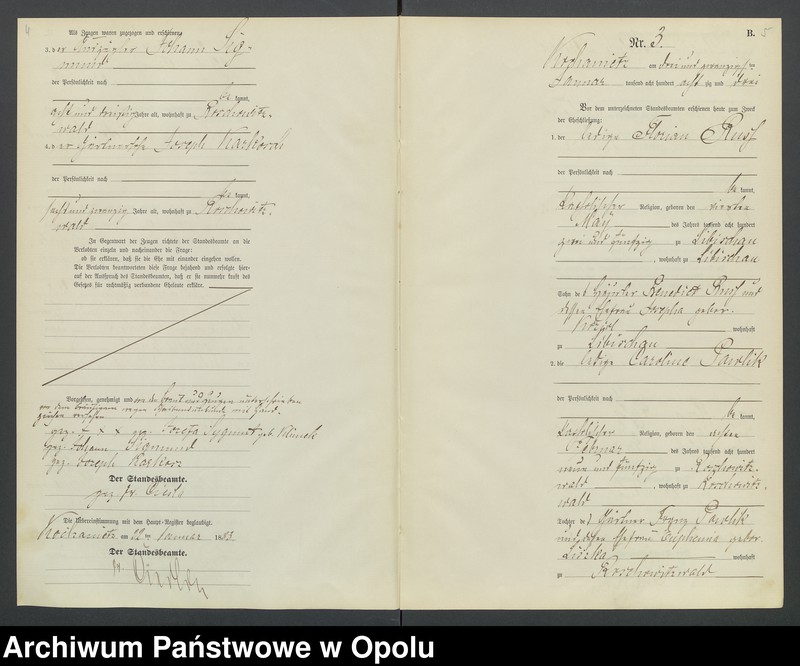 4
Als Zeugen waren zugezogen und erschienen:
3. der Johann Sig-
mund
der Persönlichkeit nach
be kannt,
acht und dreißig Jahre alt, wohnhaft zu Koschowitz-
wald
4. der Joseph
der Persönlichkeit nach
be kannt,
und zwanzig Jahre alt, wohnhaft zu Koschowitz-
wald
In Gegenwart der Zeugen richtete der Standesbeamte an die
Verlobten einzeln und nacheinander die Frage:
ob sie erklären, daß sie die Ehe mit einander eingehen wollen.
Die Verlobten beantworteten diese Frage bejahend und erfolgte hier-
auf der Ausspruch des Standesbeamten, daß er sie nunmehr kraft des
Gesetzes für rechtmäßig verbundene Eheleute erkläre.
Vorgelesen, genehmigt und von der Braut und Zeugen unterschrieben
von dem Bräutigam wegen mit Hand-
zeichen versehen
gez. + x x gez. Josefa Sygmunt geb. Klimek
gez. Johann Sigmund
gez. Joseph
Der Standesbeamte.
gez.
Die Uebereinstimmung mit dem Haupt-Register beglaubigt.
Kochanietz am 22ten Januar 1883.
Der Standesbeamte.
B.
5
Nr. 3.
Kochanietz am drei und zwanzigsten
Januar tausend acht hundert acht zig und drei
Vor dem unterzeichneten Standesbeamten erschienen heute zum Zweck
der Eheschließung:
1. der ledige Florian Russ
der Persönlichkeit nach
be kannt,
katholischer Religion, geboren den vierten
May des Jahres tausend acht hundert
zwei und fünfzig zu Libischau
, wohnhaft zu Libischau
Sohn des Häusler Benedict Russ und
dessen Ehefrau Josepha gebor.
wohnhaft
zu Libischau
2. die ledige Caroline Pawlik
der Persönlichkeit nach
be kannt,
katholischer Religion, geboren den ersten
Februar des Jahres tausend acht hundert
neun und fünfzig zu Koschowitz-
wald , wohnhaft zu Koschowitz-
wald
Tochter des Gärtner Franz Pawlik
und dessen Ehefrau Euphemia gebor.
wohnhaft
zu Koschowitzwald
Archiwum Państwowe w Opolu